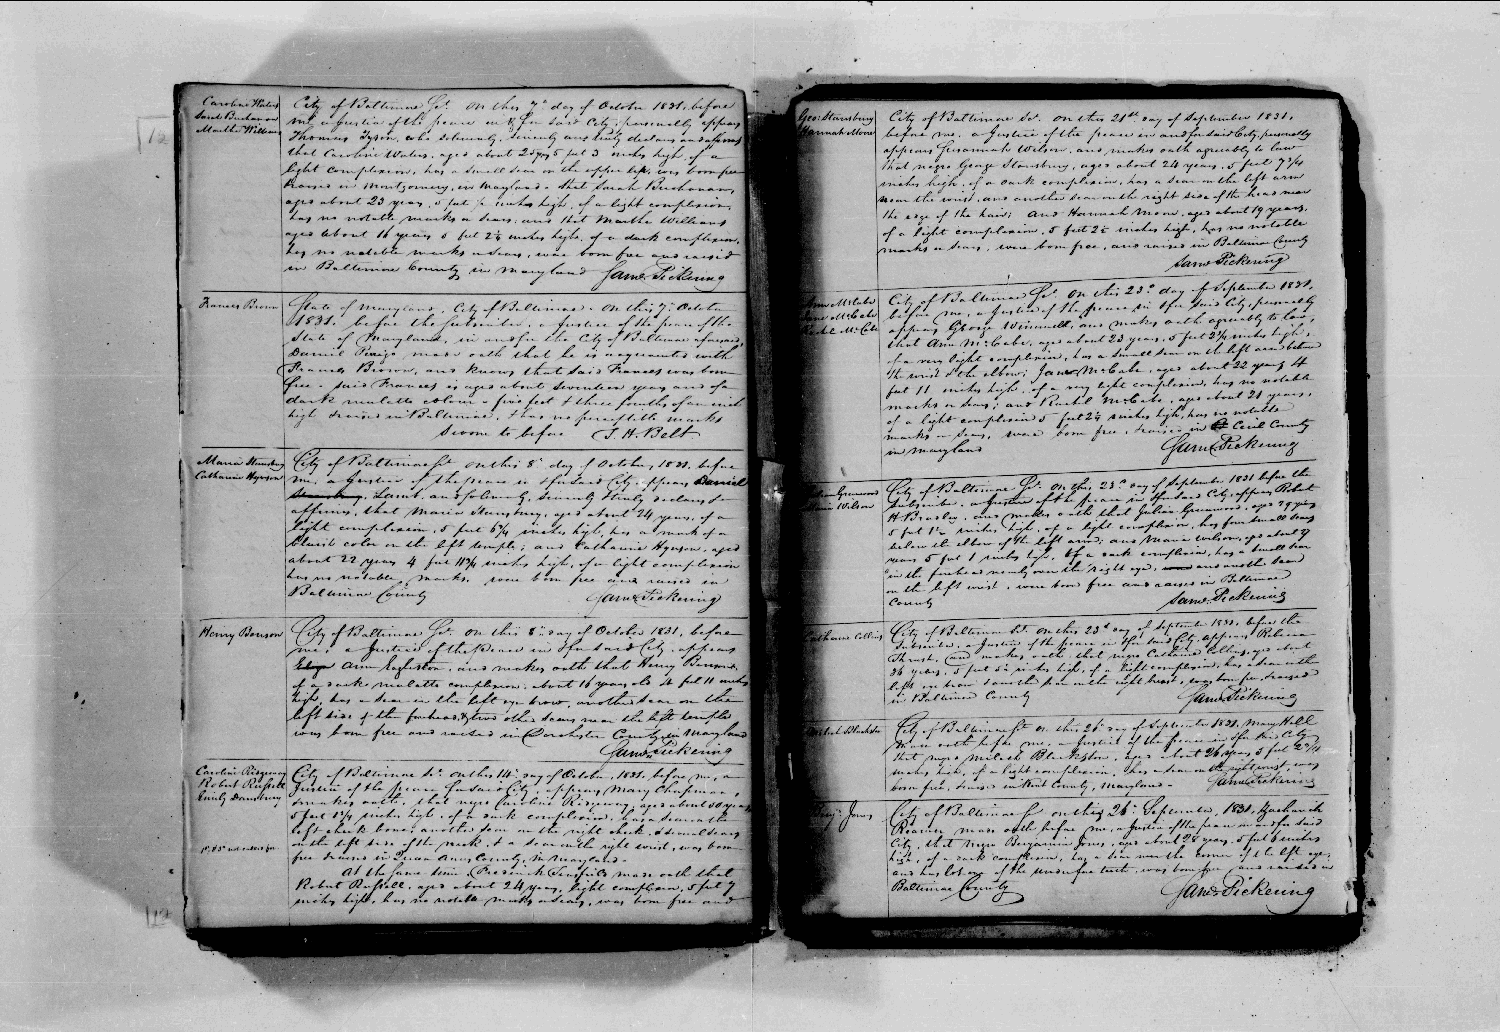 Caroline Waters
Sarah Buchanan
Martha Williams
City of Baltimore Sct. On this 7th day of October 1831, before
me a Justice of the peace in & for said City, personally appears
Thomas Tyson, who solemnly, sincerely and truly declares and affirms
that Caroline Waters, aged about 25 yrs 5 feet 3 inches high, of a
light complexion, has a small scar on the upper lip, was born free
& raised in Montgomery, in Maryland & that Sarah Buchanan,
aged about 23 years, 5 feet inches high, of a light complexion,
has no notable marks or scars, and that Martha Williams
aged about 16 years 5 feet 2½ inches high, of a dark complexion,
has no notable marks or scars, was born free and raised
in Baltimore County in Maryland Saml Pickering
Frances Brown
State of Maryland, City of Baltimore. On this 7th October
1831. before the subscriber, a Justice of the peace of the
State of Maryland, in and for the City of Baltimore aforesaid,
Daniel made oath that he is acquainted with
Frances Brown, and knows that said Frances was born
free. said Frances is aged about seventeen years and of a
dark mulatto colour & five feet & three fourths of an inch
high & raised in Baltimore. & has no perceptible marks
Sworn to before T. H. Belt
Maria Stansbury
Catharine Hynson
City of Baltimore Sct. on this 8th day of October, 1831, before
me, a Justice of the peace in & for said City, appears Daniel
and solemnly, sincerely & truly declares &
affirms, that Maria Stansbury, aged about 24 years, of a
light complexion, 5 feet 6¾ inches high, has a mark of a
black color on the left temple; and Catharine Hynson, aged
about 22 years 4 feet 11¾ inches high, of a light complexion
has no notable marks, were born free and raised in
Baltimore County Saml Pickering
Henry Benson
City of Baltimore Sct. on this 8th day of October 1831, before
me, a Justice of the Peace in & for said City, appears
Ann Eagleston, and makes oath that Henry Benson,
of a dark mulatto complexion, about 16 years old 4 feet 11 inches
high, has a scar in the left eye brow, another scar on the
left side of the forehead, & two other scars near the left temple
was born free and raised in Dorchester County, in Maryland
Saml Pickering
Caroline Ridgeway
Robert Russell
Emily Dansbury
City of Baltimore Sct. On this 14th day of October, 1831, before me, a
Justice of the peace for said City, appears Mary Chapman,
& makes oath, that negro Caroline Ridgeway, aged about 30 years,
5 feet 1¾ inches high, of a dark complexion, has a scar on the
left cheek bone, another scar on the right cheek, & several scars
on the left side of the neck, & a scar on the right wrist, was born
free & raised in Queen Anns County, in Maryland.
At the same time Frederick made oath that
Robert Russell, aged about 24 years, light complexion, 5 feet 7
inches high, has no notable marks or scars, was born free and
Geo: Stansbury
Hannah Moore
City of Baltimore Sct. On this 21st day of September 1831,
before me, a Justice of the peace in and for said City, personally
appears Susannah Wilson, and makes oath agreeably to law
that negro George Stansbury, aged about 24 years, 5 feet 7¾
inches high, of a dark complexion, has a scar on the left arm
near the wrist, and another scar on the right side of the head near
the edge of the hair; and Hannah Moore, aged about 19 years,
of a light complexion, 5 feet 2½ inches high, has no notable
marks or scars, were born free, and raised in Baltimore County
Saml Pickering
Ann McCabe
Jane McCabe
Rachel McCabe
City of Baltimore Sct. On this 23d day of September 1831,
before me, a Justice of the peace in & for said City, personally
appears George Wimmell, and makes oath agreeably to law,
that Ann McCabe, aged about 23 years, 5 feet 2¼ inches high,
of a very light complexion, has a small scar on the left arm between
the wrist & the elbow; Jane McCabe, aged about 22 years 4
feet 11 inches high, of a very light complexion, has no notable
marks or scars; and Rachel McCabe, aged about 21 years,
of a light complexion 5 feet 2¼ inches high, has no notable
marks or scars, were born free, & raised in Cecil County
in Maryland Saml Pickering
Julian Greenwood
Maria Wilson
City of Baltimore Sct. On this 23d day of September 1831 before the
subscriber, a Justice of the peace in & for said City, appears Robert
H. Bradley, and makes oath that Julian Greenwood, aged 29 years
5 feet 1½ inches high, of a light complexion, has four small scars
below the elbow of the left arm; and Maria Wilson, aged about
years 5 feet 1 inches high, of a dark complexion, has a small scar
in the forehead nearly over the right eye, and another scar
on the left wrist, were born free and raised in Baltimore
County Saml Pickering
Catharine Collins
City of Baltimore Sct. On this 23d day of September 1831, before the
subscriber, a Justice of the peace in & for said City, appears Rebecca
Thrush, and makes oath that negro Catharine Collins, aged about
36 years, 5 feet inches high, of a light complexion, has a scar on the
left and another scar on the right breast, was born free, & raised
in Baltimore County Saml Pickering
Milcah Blackston
City of Baltimore Sct. On this 26th day of September 1831, Mary Hall
made oath before me, a Justice of the peace in & for said City
that negro Milcah Blackston, aged about 26 years, 5 feet 2¾
inches high, of a light complexion, has a scar on the right wrist, was
born free, & raised in Kent County, Maryland. Saml Pickering
Benjn Jones
City of Baltimore Sct. On this 26th September, 1831, Zachariah
made oath before me, a Justice of the peace in and for said
City, that negro Benjamin Jones, aged about years, 5 feet 6 inches
high, of a dark complexion, has a scar near the corner of the left eye,
and has lost one of the under fore teeth, was born free and raised in
Baltimore County Saml Pickering